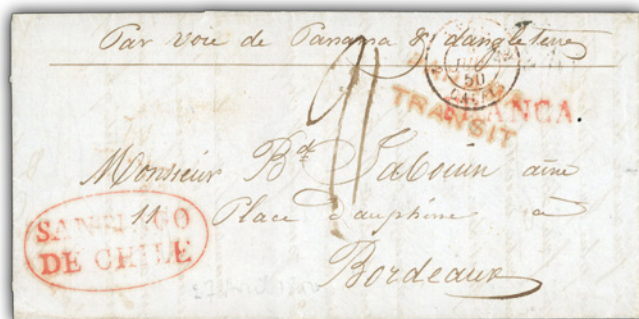 Par voie de Panama & d'angleterre
50
CALAIS
TRANSIT
FRANCA.
Monsieur Bd Sabouin ainé
11 Place dauphine à
Bordeaux
SANTIAGO
DE CHILE